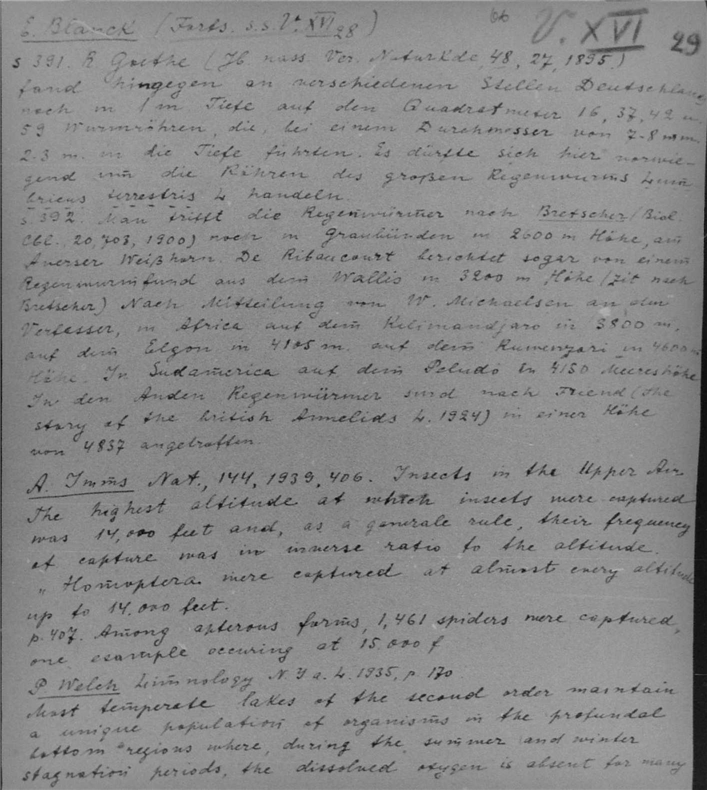 E. Blanck (Forts. s.s. V. XVI 28) V. XVI 29
s 391. R. Goethe (Jb. nass. Ver. Naturkde, 48, 27, 1895.)
fand hingegen an verschiedenen Stellen Deutschlands
noch in 1 m Tiefe auf den Quadratmeter 16, 37, 42 u.
59 Wurmröhren, die, bei einem Durchmesser von 7-8 mm
2-3 m. in die Tiefe führten. Es dürfte sich hier vorwie-
gend um die Röhren des großen Regenwurms Lum
bricus terrestris L handeln.
s. 392. Man trifft die Regenwürmer nach Bretscher (Biol.
Cbl. 20, 703, 1900) noch in Graubünden in 2600 m Höhe, am
Averser Weißhorn. De Ribaucourt berichtet sogar von einem
Regenwurmfund aus dem Wallis in 3200 m Höhe (zit nach
Bretscher) Nach Mitteilung von W. Michaelsen an den
Verfasser, in Africa auf dem Kilimandjaro in 3800 m,
auf dem Elgon in 4105 m. auf dem Ruwenzori in 4600 m
Höhe. In Südamerica auf dem Peludo in 4150 Meereshöhe
In den Anden Regenwürmer sind nach Friend (the
story of the british Annelids L. 1924) in einer Höhe
von 4837 angetroffen
A. Imms Nat., 144, 1939, 406. Insects in the Upper Air
The highest altitude at which insects were captured
was 14,000 feet and, as a generale rule, their frequency
of capture was in inverse ratio to the altitude.
„ Homoptera were captured at almost every altitude
up to 14.000 feet.
p. 407. Among apterous forms, 1,461 spiders were captured,
one example occuring at 15.000 f
P Welch Limnology N.Y a. L. 1935, p 170
Most temperate lakes of the second order maintain
a unique population of organisms in the profundal
bottom regions where, during the summer and winter
stagnation periods, the dissolved oxygen is absent for many